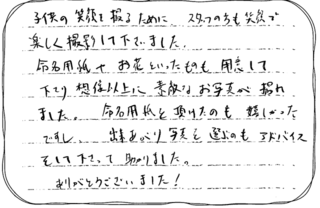 子供の笑顔を撮るために スタッフの方も笑顔で
楽しく撮影して下さいました。
命名用紙や お花といったものも 用意して
下さり 想像以上に 素敵なお写真が 撮れ
ました。 命名用紙を 頂けたのも 嬉しかった
ですし、 出来あがり写真を 選ぶのも アドバイス
をして下さって 助かりました。
ありがとうございました!